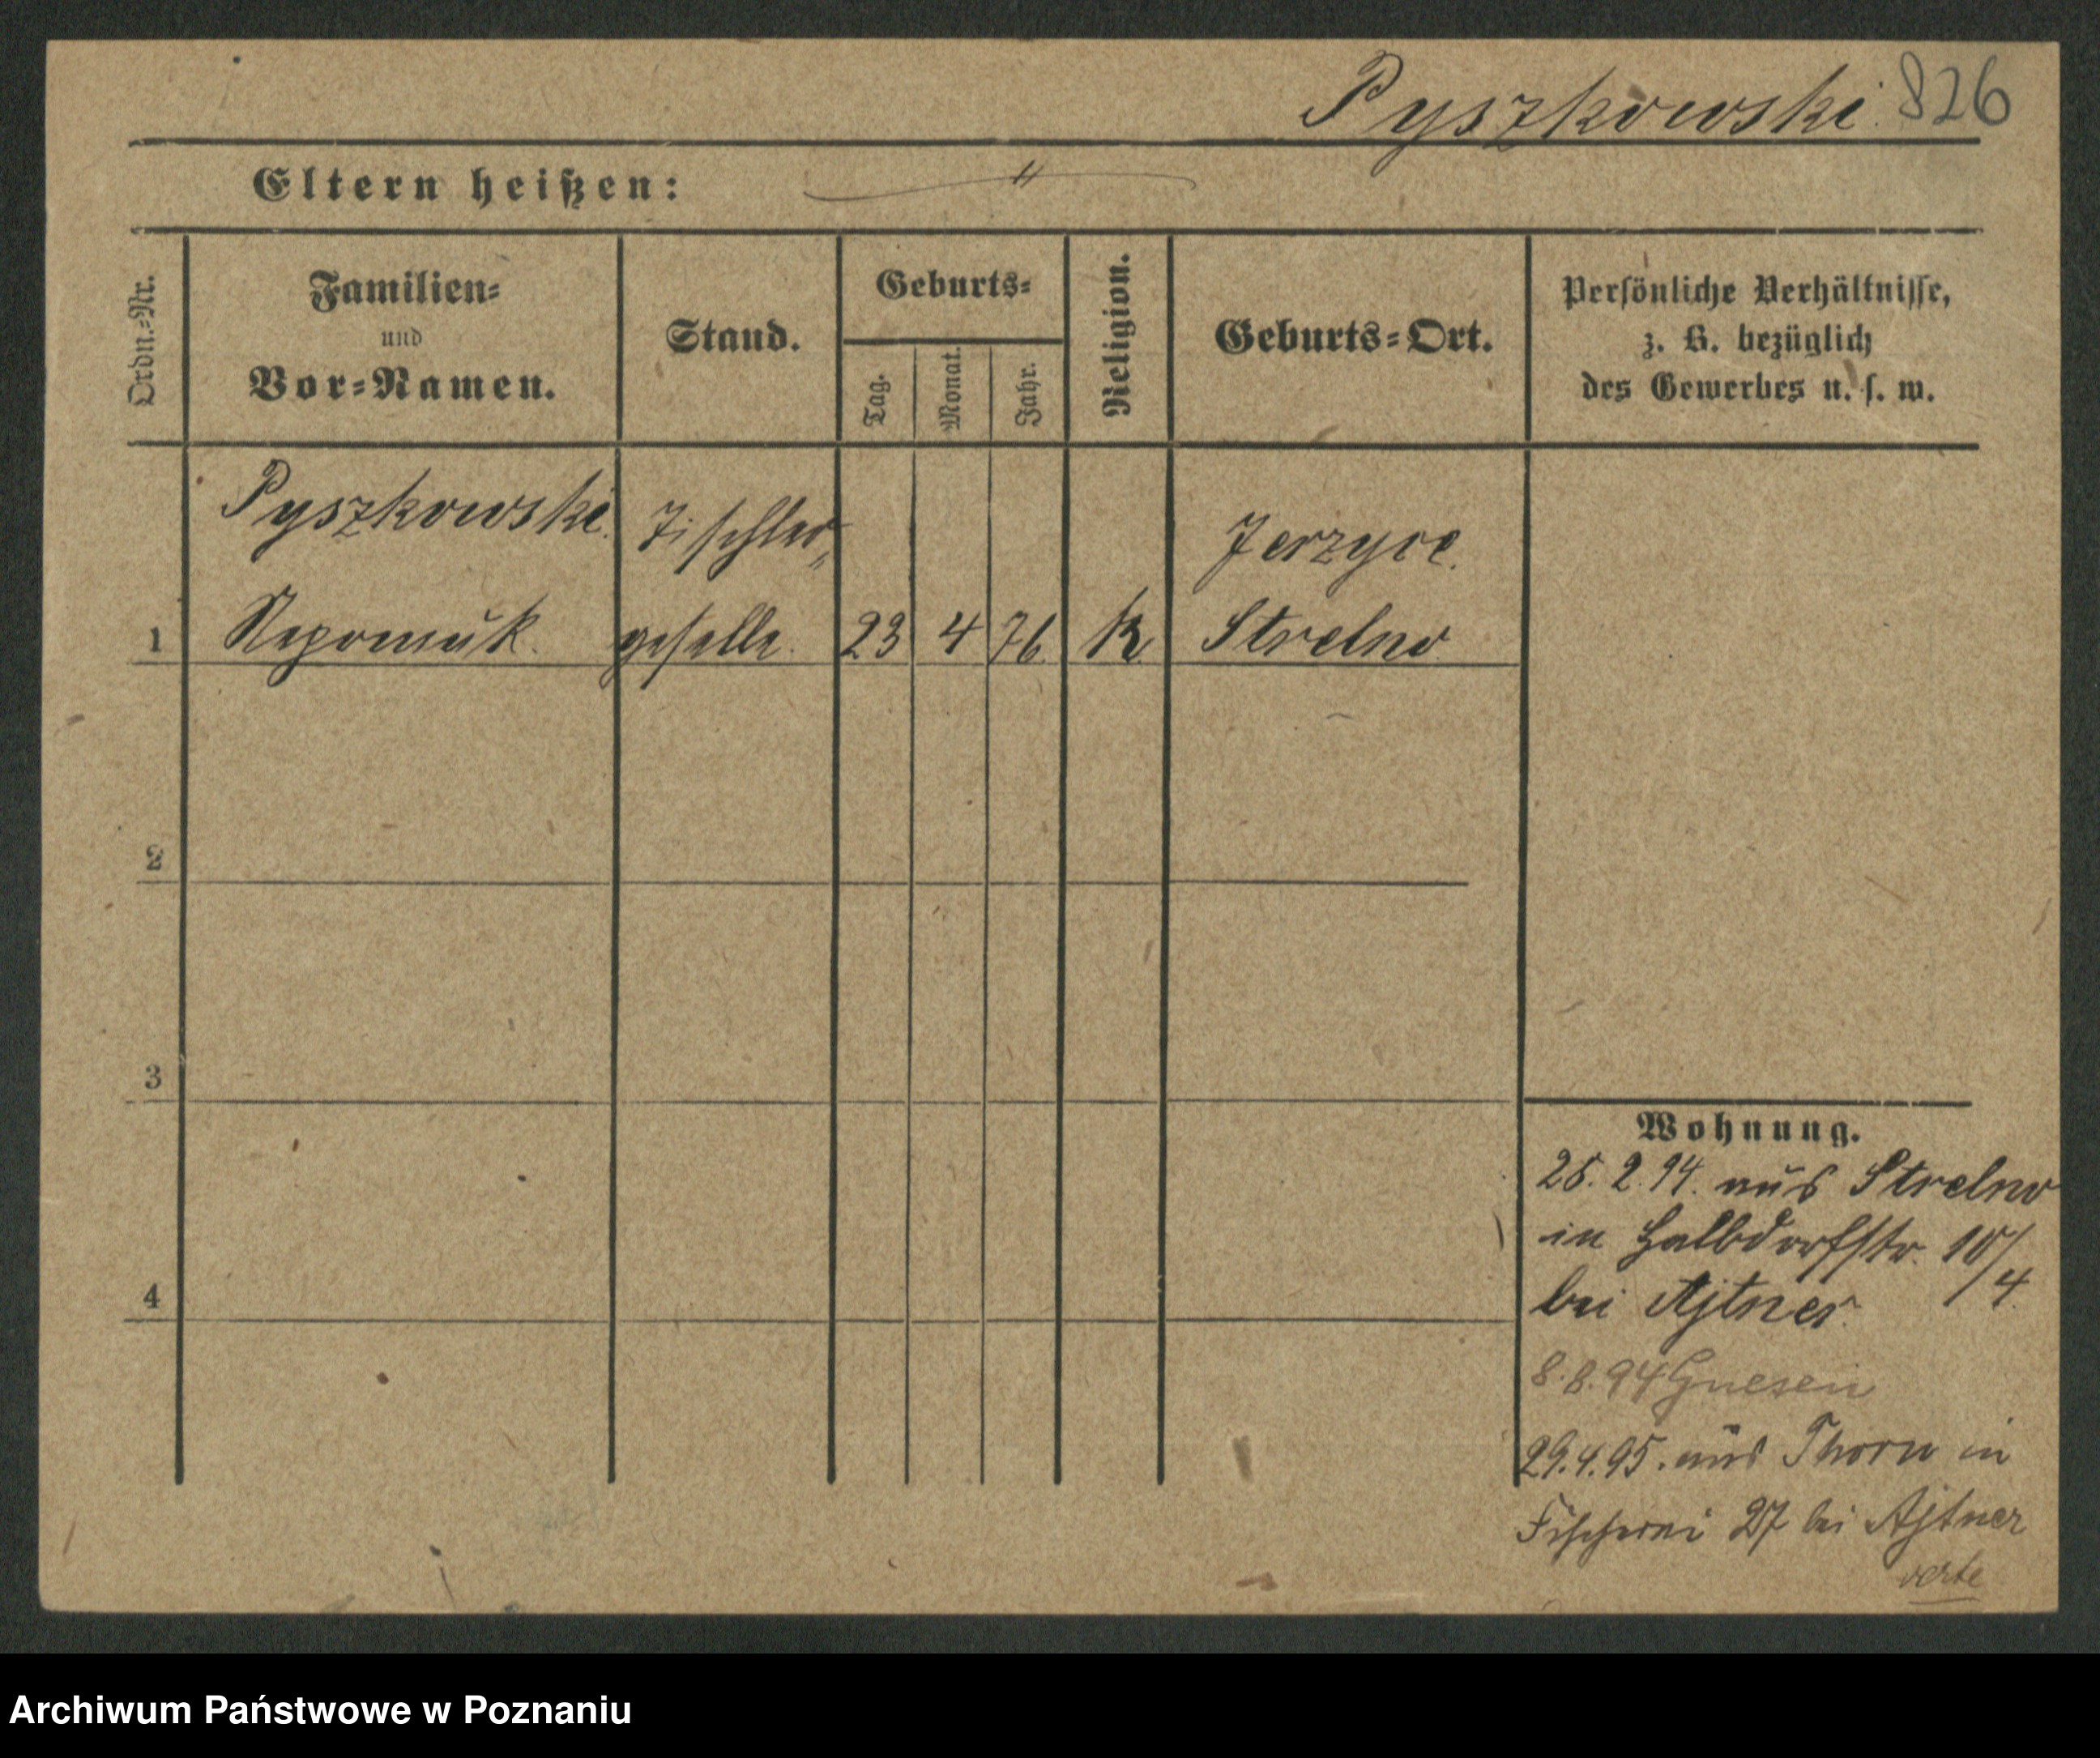 Pyszkowski. 826
Eltern heißen: "
Ordn.=Nr.
Familien=
und
Vor=Namen.
Stand.
Geburts=
Tag.
Monat.
Jahr.
Religion.
Geburts=Ort.
Persönliche Verhältnisse,
z. B. bezüglich
des Gewerbes u. s. w.
Pyszkowski. Tischler„ Jerzyce.
1 Nepomuk. geselle. 23 4 76. K. Strelno
2
3
4
Wohnung.
25. 2. 94. aus Strelno
in Halbdorfstr. 10/4.
bei Ajtner.
8.8.94 Gnesen
29.4.95. aus Thorn in
Fischerei 27 bei Ajtner
verte
Archiwum Państwowe w Poznaniu